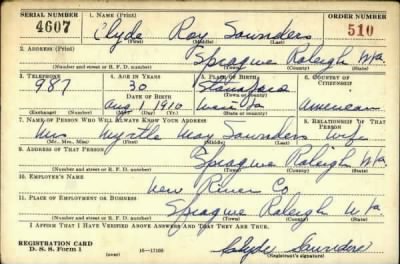 SERIAL NUMBER
1. NAME (Print)
ORDER NUMBER
4607
Clyde Roy Saunders
510
(First) (Middle) (Last)
2. ADDRESS (Print)
Sprague Raleigh W.Va.
(Number and street or R. F. D. number) (Town) (County) (State)
3. TELEPHONE
4. AGE IN YEARS
5. PLACE OF BIRTH
6. COUNTRY OF CITIZENSHIP
987
30
Stanaford
DATE OF BIRTH
Aug 1 1910
American
(Exchange) (Number)
(Mo.) (Day) (Yr.)
(Town or county)
(State or country)
7. NAME OF PERSON WHO WILL ALWAYS KNOW YOUR ADDRESS
8. RELATIONSHIP OF THAT PERSON
Mrs Myrtle May Saunders wife
(Mr., Mrs., Miss) (First) (Middle) (Last)
9. ADDRESS OF THAT PERSON
Sprague Raleigh W.Va.
(Number and street or R. F. D. number) (Town) (County) (State)
10. EMPLOYER'S NAME
New River Co
11. PLACE OF EMPLOYMENT OR BUSINESS
Sprague Raleigh W.Va.
(Number and street or R. F. D. number) (Town) (County) (State)
I AFFIRM THAT I HAVE VERIFIED ABOVE ANSWERS AND THAT THEY ARE TRUE.
REGISTRATION CARD
D. S. S. Form 1
(over)
Clyde Saunders
(Registrant's signature)